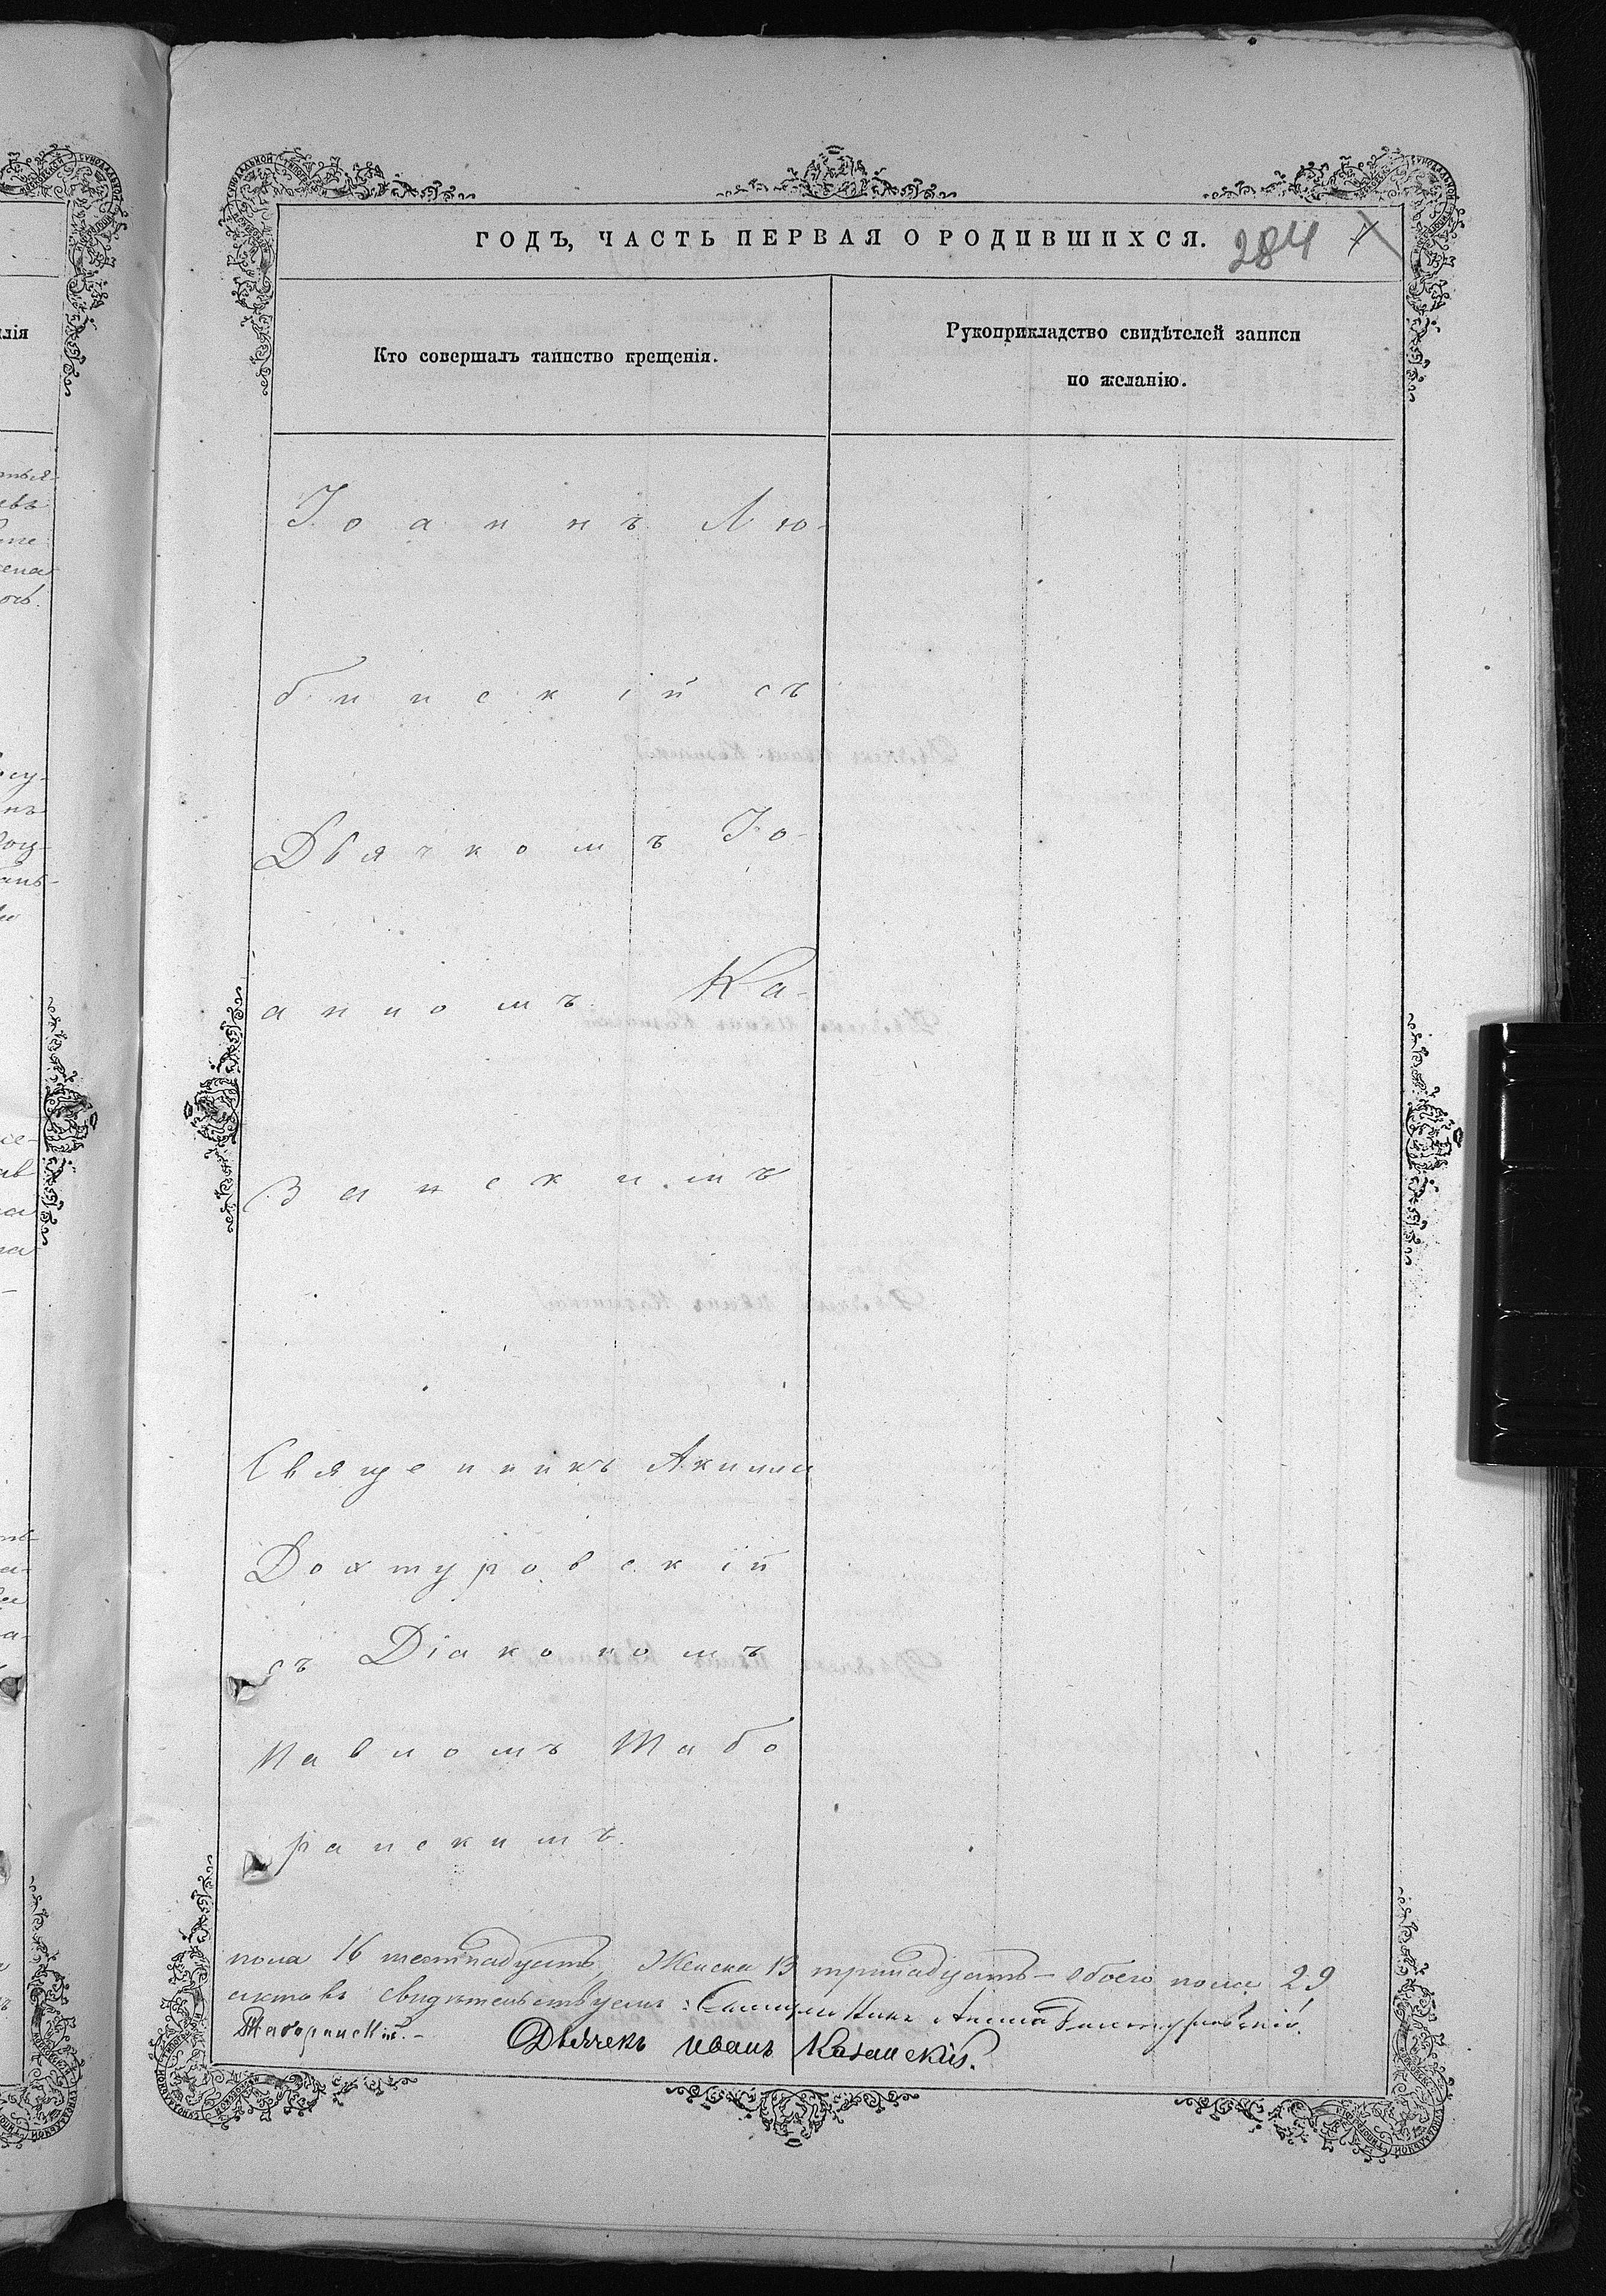 ГОДЪ, ЧАСТЬ ПЕРВАЯ О РОДИВШИХСЯ. 284
Кто совершалъ таинство крещенія.
Рукоприкладство свидѣтелей записи
по желанію.
Іоаннъ Лю-
бинскій съ
Дьячкомъ Іо-
анномъ Ка-
занскимъ
Священникъ Акимъ
Дохтуровскій
съ Діакономъ
Павломъ Табо
ранскимъ.
пола 16 шестнадцать, Женска 13 тринадцать - обоего пола 29
актовъ свидѣтельствуемъ: Священникъ
Таборанскій. -
Дьячекъ Иванъ Казанскій.